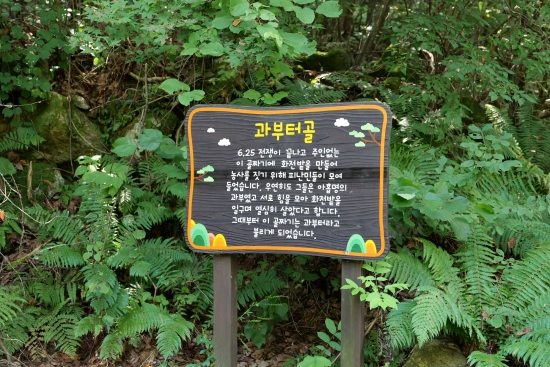 과부터골
6.25 전쟁이 끝나고 주인없는
이 골짜기에 화전밭을 만들어
농사를 짓기 위해 피난민들이 모여
들었습니다. 우연히도 그들은 아홉명의
과부였고 서로 힘을 모아 화전밭을
일구며 열심히 살았다고 합니다.
그때부터 이 골짜기는 과부터라고
불리게 되었습니다.